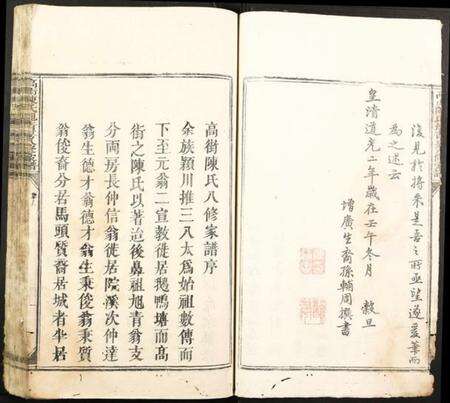 後見於將來是吾之所亟望邇爰筆而
為之述云
皇清道光二年歲在壬午冬月 穀旦
增廣生裔孫輔周撰書
高衝陳氏八修家譜序
余族潁川推三八太爲始祖數傳而
下至元翁二宣教徙居鵝鴨塘而高
衝之陳氏以著迨後鼻祖旭青翁支
分兩房長仲信翁徙居院溪次仲達
翁生德才翁德才翁生秉俊翁秉質
翁俊裔分居馬頭質裔居城者半居